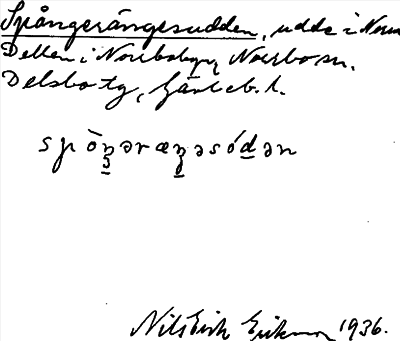 Spångerängesudden, udde i Norra
Dellen i Norrbobyn, Norrbo sn.
Delsbo tg, Gävleb. l.
spṑŋ̱əræŋ̱əsóḏən
Nils Erik Erikson 1936.